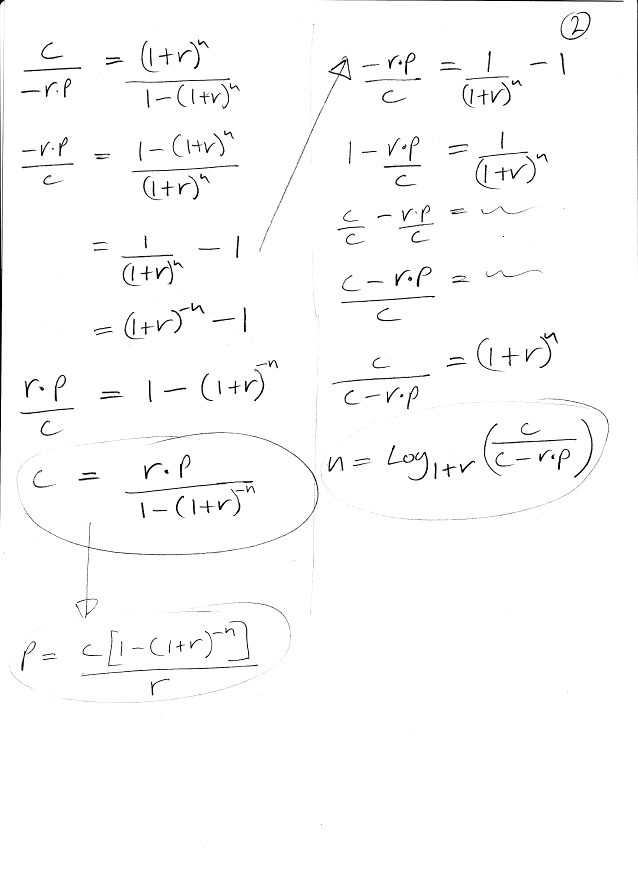 c/(-r·p) = (1+r)^n/(1-(1+r)^n)
-r·p/c = (1-(1+r)^n)/(1+r)^n
= 1/(1+r)^n - 1
= (1+r)^-n - 1
r·p/c = 1 - (1+r)^-n
c = r·p/(1-(1+r)^-n)
p = c[1-(1+r)^-n]/r
②
-r·p/c = 1/(1+r)^n - 1
1 - r·p/c = 1/(1+r)^n
c/c - r·p/c = ~
(c-r·p)/c = ~
c/(c-r·p) = (1+r)^n
n = Log_1+r (c/(c-r·p))